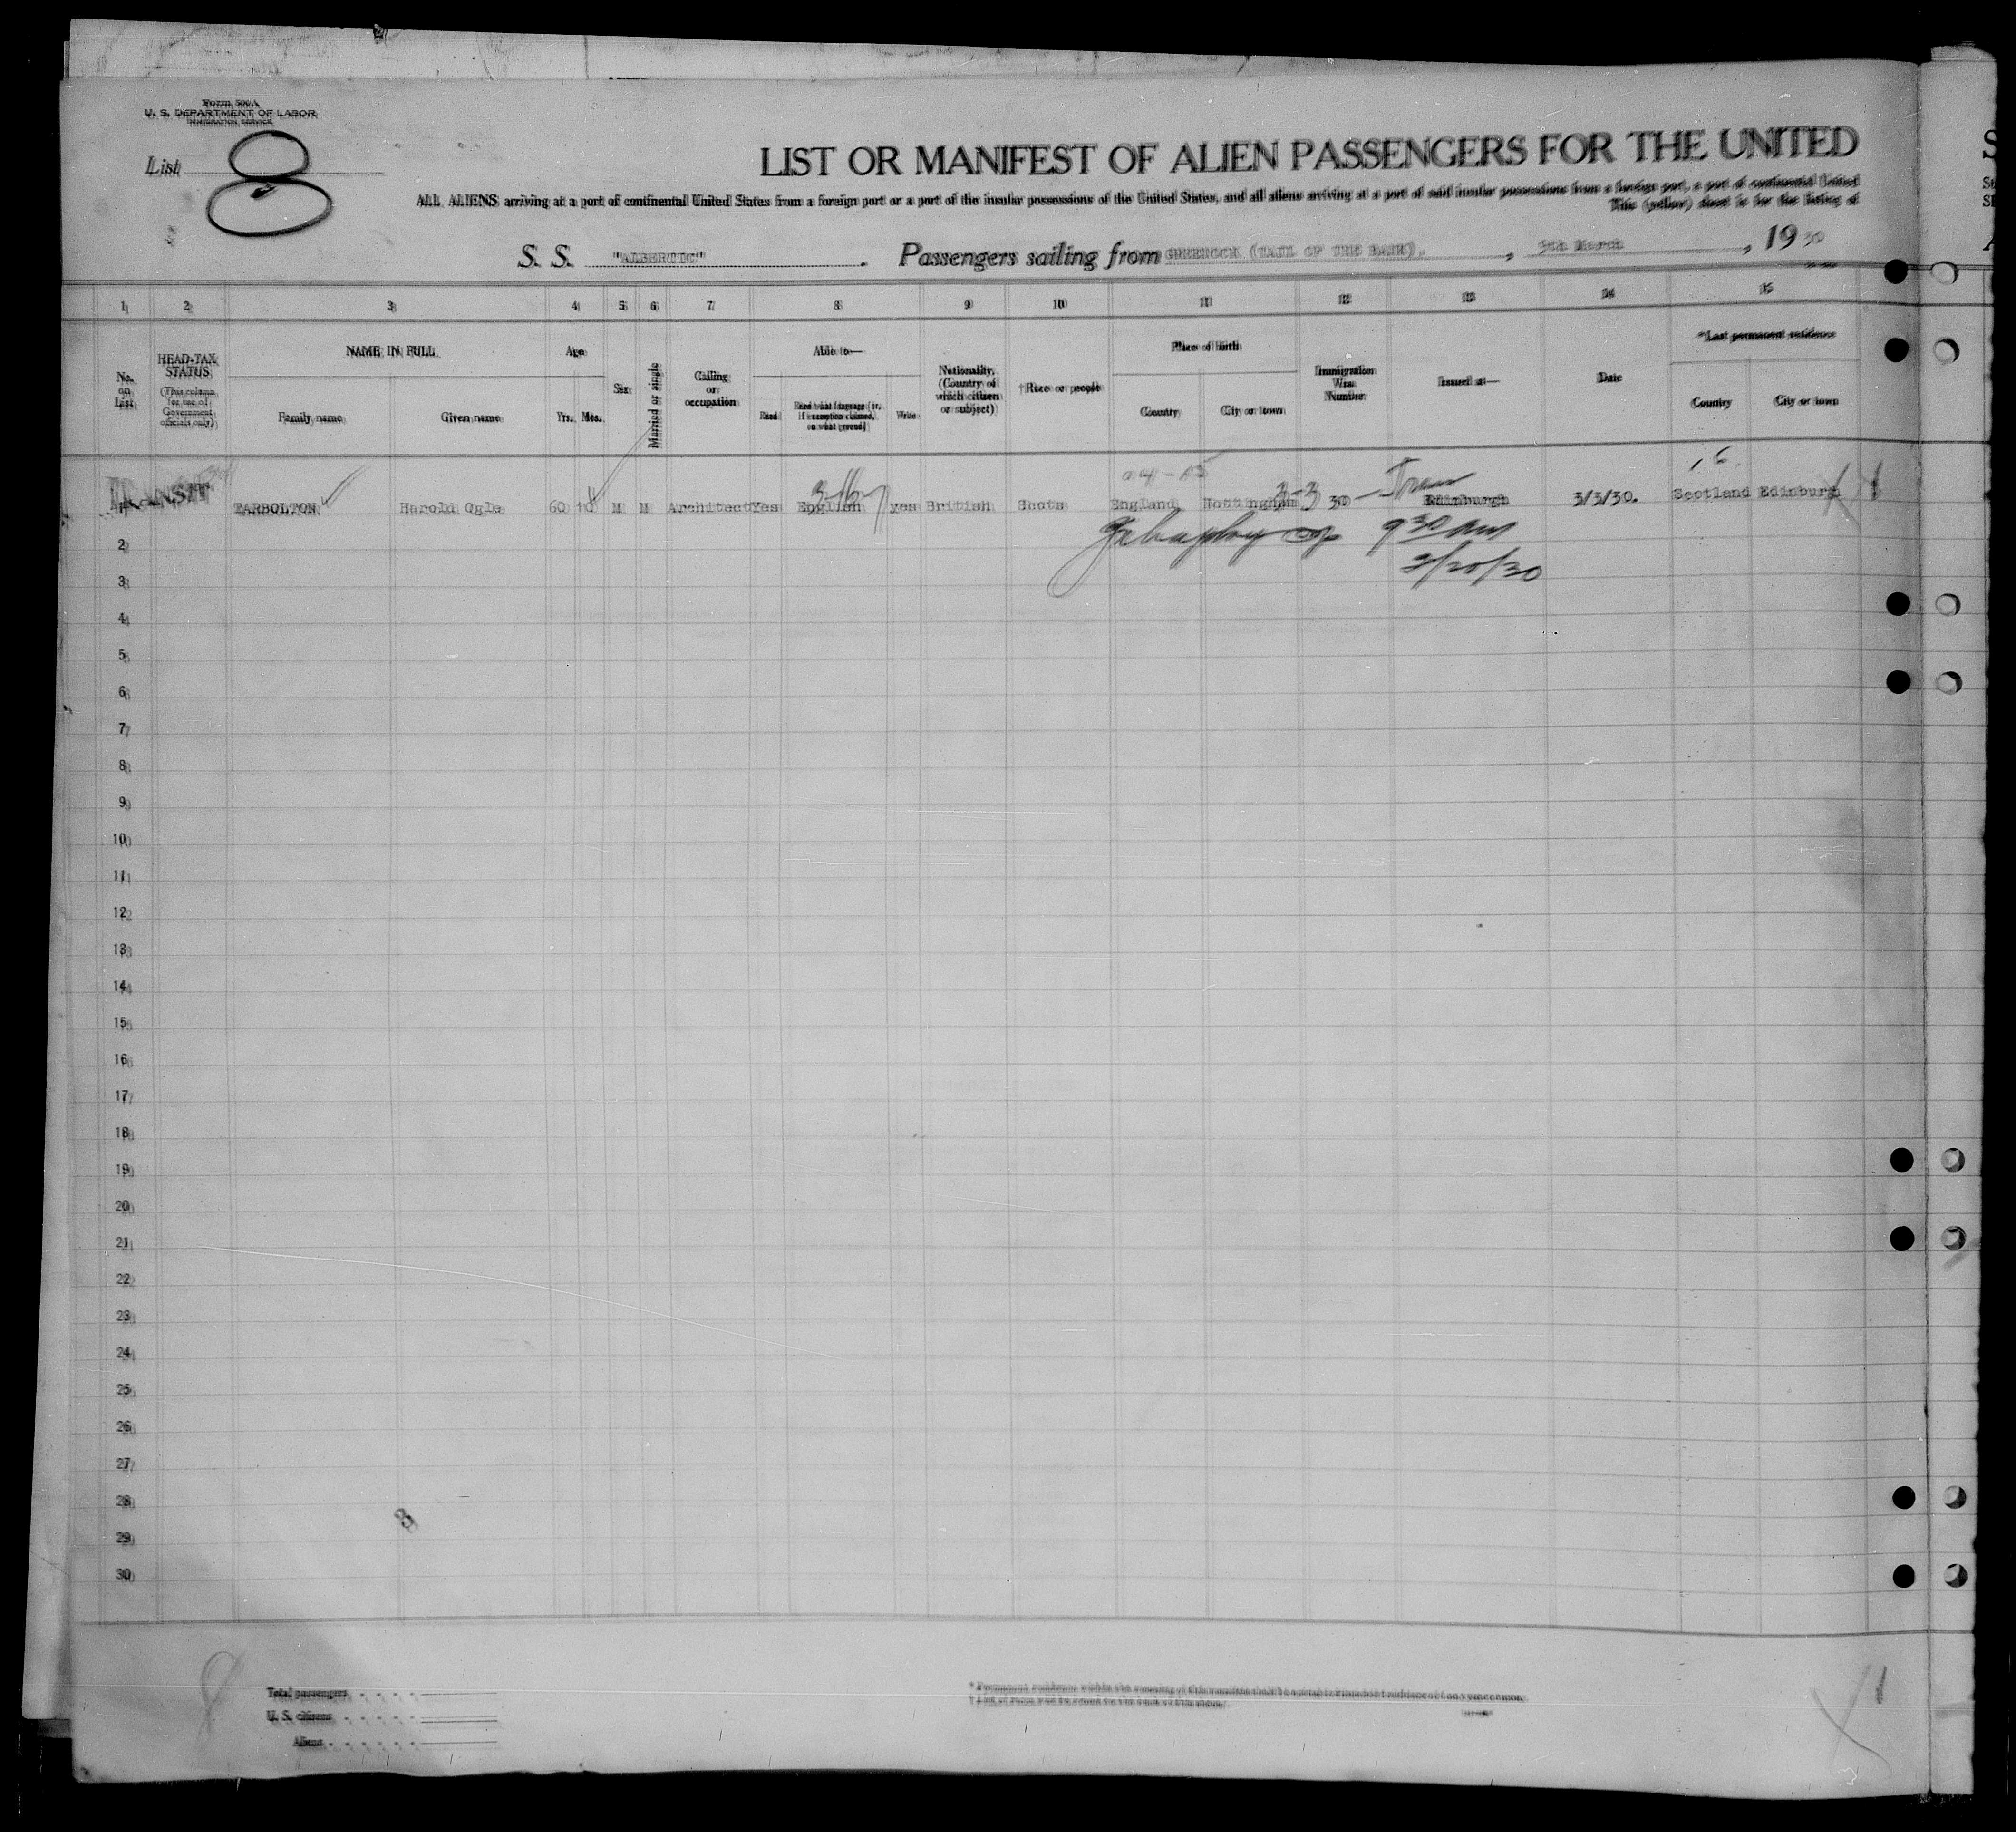 Form 500A
U. S. DEPARTMENT OF LABOR
IMMIGRATION SERVICE
List 8
LIST OR MANIFEST OF ALIEN PASSENGERS FOR THE UNITED
ALL ALIENS arriving at a port of continental United States from a foreign port or a port of the insular possessions of the United States, and all aliens arriving at a port of said insular possessions from a foreign port, a port of continental United
This (yellow) sheet is for the listing of
S. S. "ALBERTIC". Passengers sailing from GREENOCK (TAIL OF THE BANK)., 9th March, 1930
1 2 3 4 5 6 7 8 9 10 11 12 13 14 15
No. on List
HEAD-TAX STATUS (This column for use of Government officials only)
NAME IN FULL
Family name Given name
Age
Yrs. Mos.
Sex
Married or single
Calling or occupation
Able to—
Read Read what language (or, if exemption claimed, on what ground) Write
Nationality. (Country of which citizen or subject)
†Race or people
Place of birth
Country City or town
Immigration Visa Number
Issued at—
Date
*Last permanent residence
Country City or town
1 TRANSIT TARBOLTON Harold Ogle 60 10 M M Architect Yes English yes British Scots England Nottingham Edinburgh 3/3/30. Scotland Edinburgh
3-3 30 —
930 am
3/20/30
2
3
4
5
6
7
8
9
10
11
12
13
14
15
16
17
18
19
20
21
22
23
24
25
26
27
28
29
30
3
Total passengers
U. S. citizens
Aliens